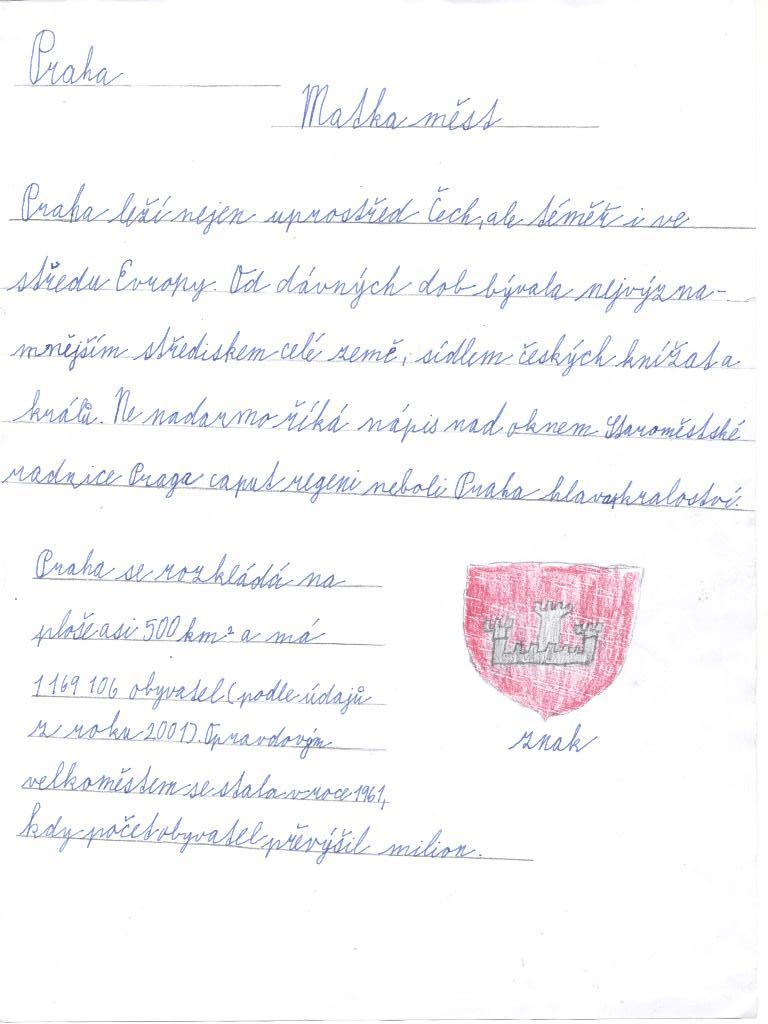 Praha
Matka měst
Praha leží nejen uprostřed Čech, ale téměř i ve
středu Evropy. Od dávných dob bývala nejvýzna-
mnějším střediskem celé země, sídlem českých knížat a
králů. Ne nadarmo říká nápis nad oknem Staroměstské
radnice Praga caput regeni neboli Praha hlava kraloství.
Praha se rozkládá na
ploše asi 500 km² a má
1 169 106 obyvatel (podle údajů
z roku 2001). Opravdovým
velkoměstem se stala v roce 1961,
kdy počet obyvatel převýšil milion.
znak